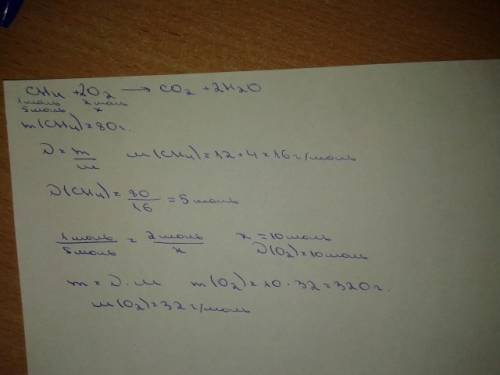 CH4 + 2O2 → CO2 + 2H2O
1 моль 2 моль
5 моль x
m(CH4) = 80 г.
ν = m/M M(CH4) = 12 + 4 = 16 г/моль
ν(CH4) = 80/16 = 5 моль
1 моль/5 моль = 2 моль/x x = 10 моль
ν(O2) = 10 моль
m = ν · M m(O2) = 10 · 32 = 320 г.
M(O2) = 32 г/моль